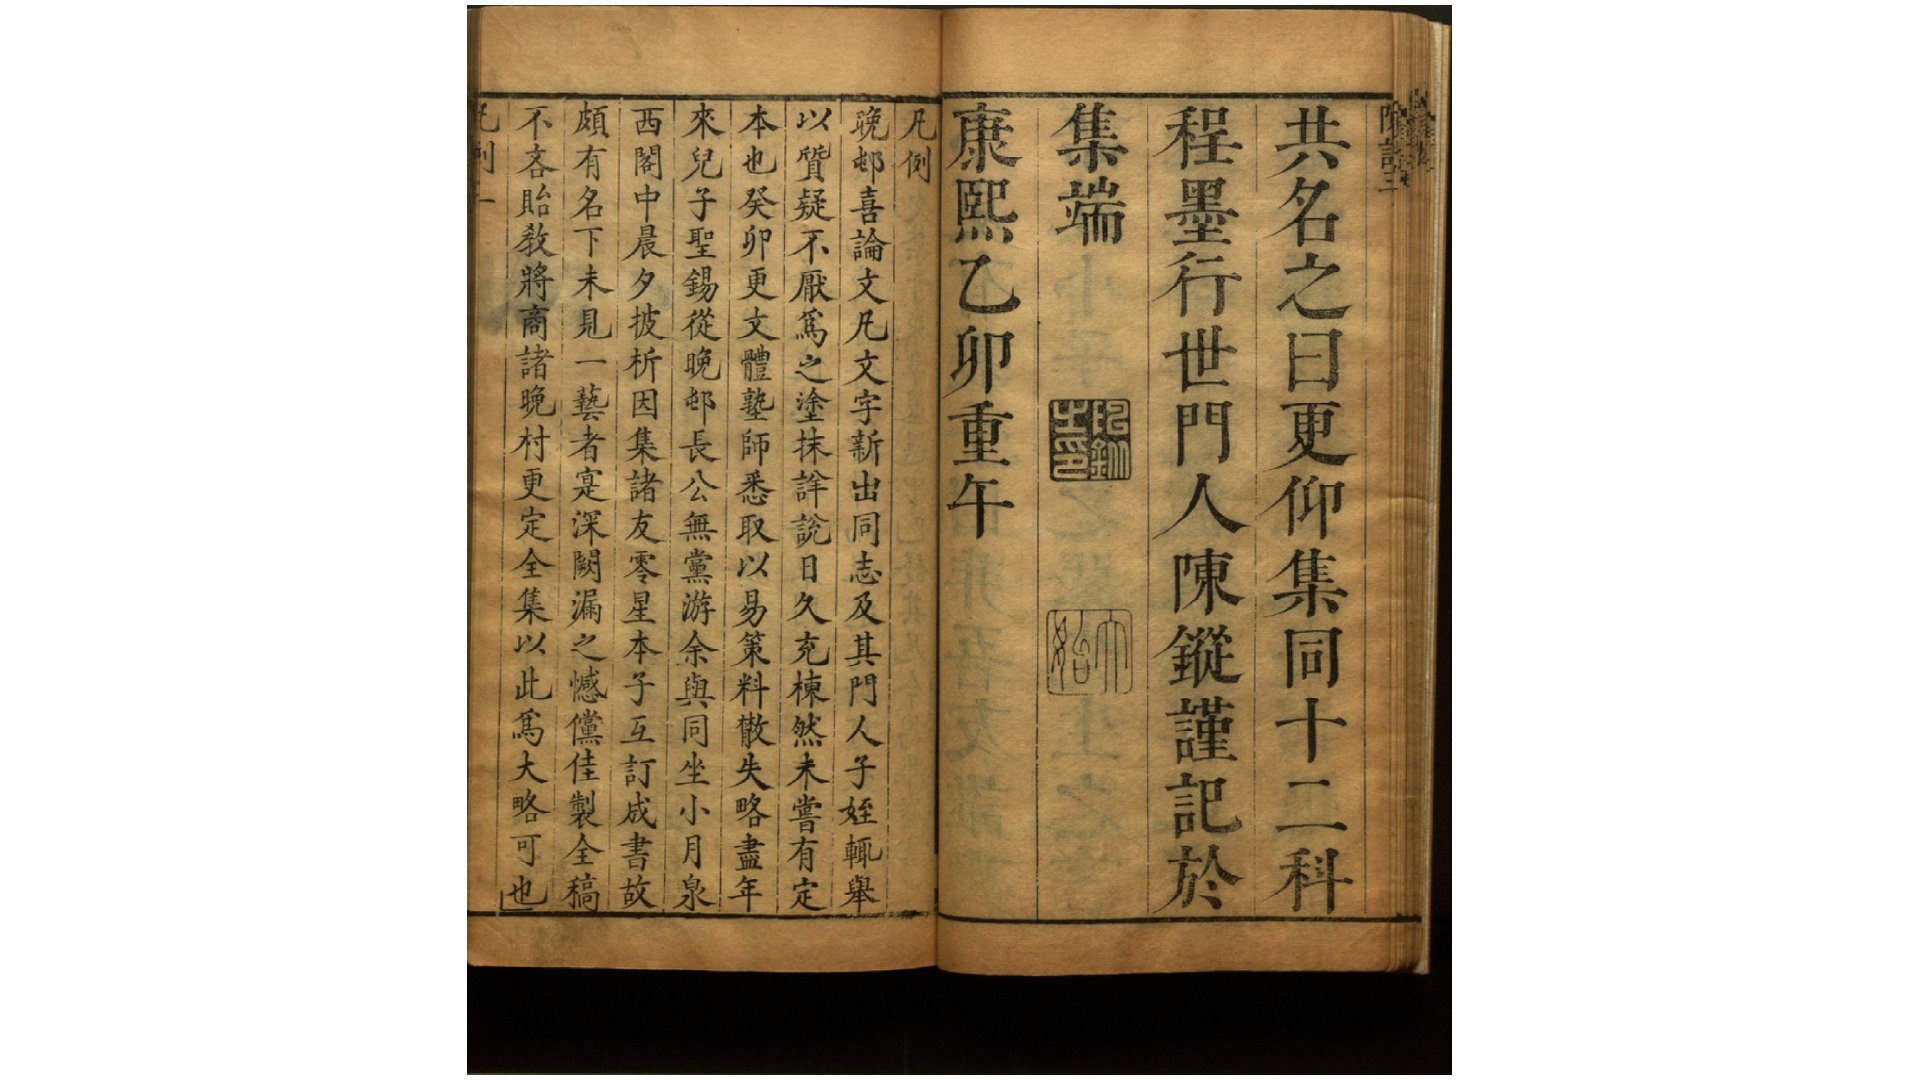 共名之曰更仰集同十二科
程墨行世門人陳鏦謹記於
集端
康熙乙卯重午
凡例
晚邨喜論文凡文字新出同志及其門人子姪輒舉
以質疑不厭爲之塗抹詳說日久充棟然未嘗有定
本也癸卯更文體塾師悉取以易策料散失略盡年
來兒子聖錫從晚邨長公無黨游余與同坐小月泉
西閣中晨夕披析因集諸友零星本子互訂成書故
頗有名下未見一藝者寔深闕漏之憾儻佳製全稿
不吝貽教將商諸晚村更定全集以此爲大略可也
凡例 一